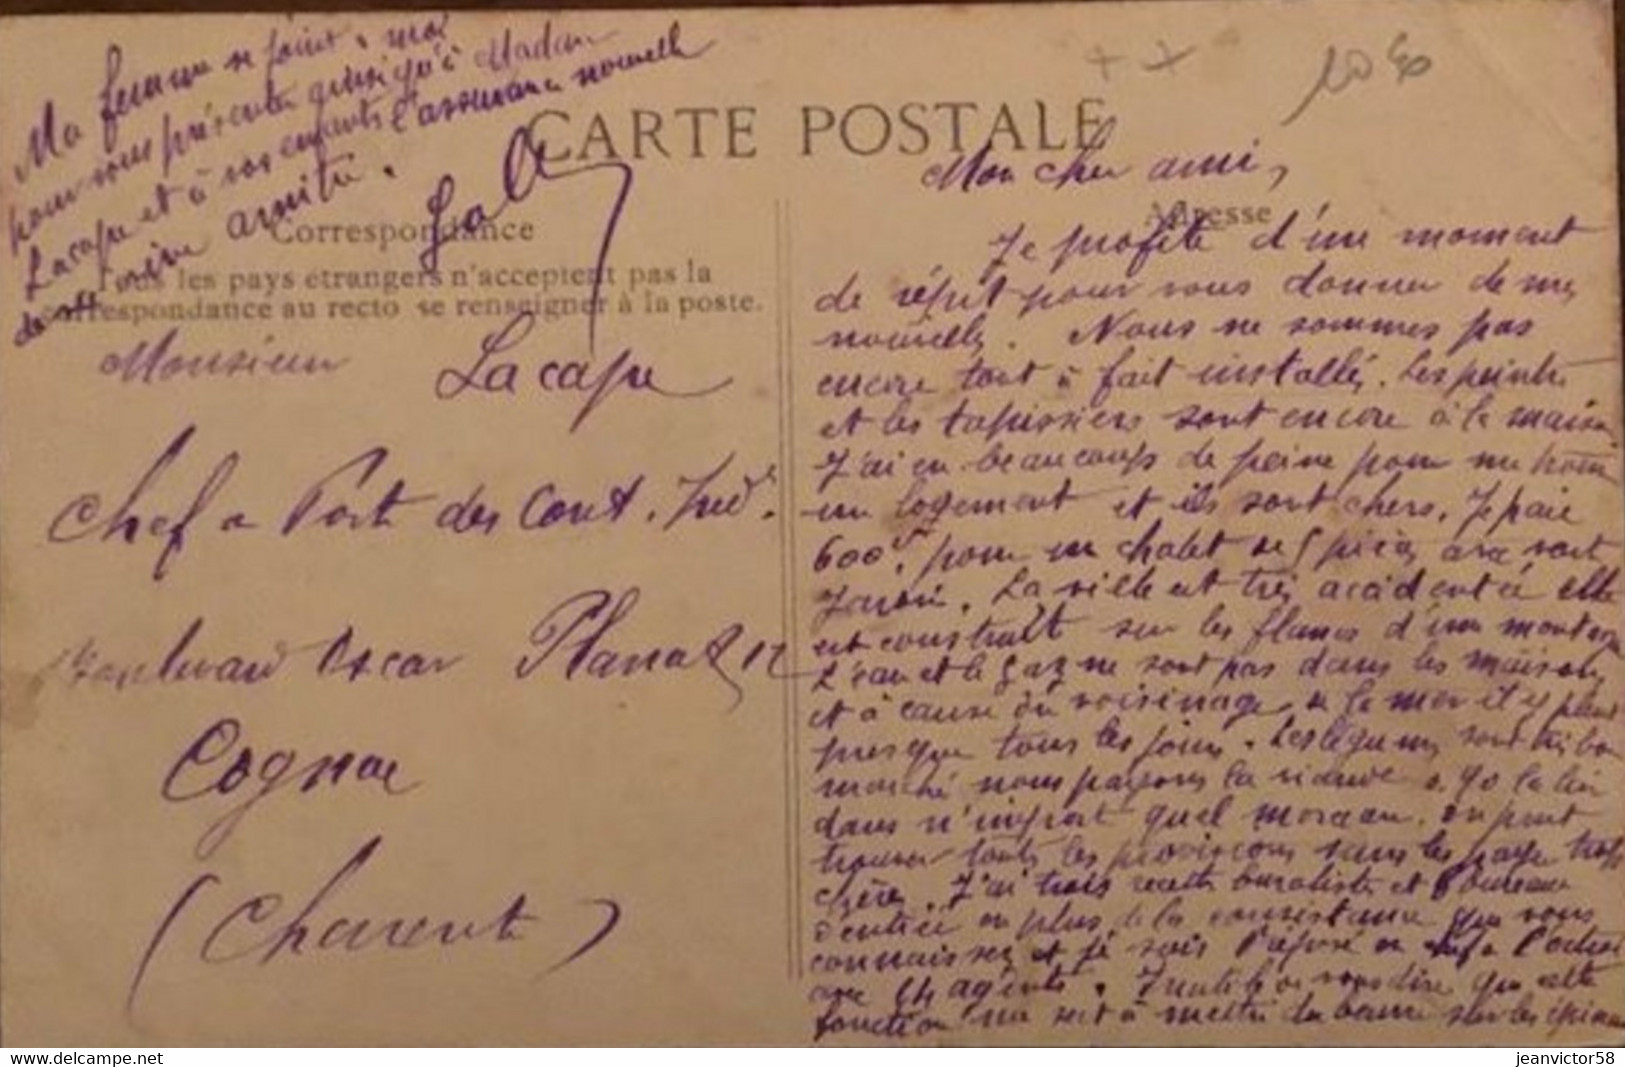 CARTE POSTALE
Correspondance
Adresse
Tous les pays étrangers n'acceptent pas la
correspondance au recto se renseigner à la poste.
Monsieur Lacape
Chef de Poste des Cont. Ind.
Boulevard Oscar Planat 12
Cognac
(Charente)
Mon cher ami,
Je profite d'un moment
de répit pour vous donner de mes
nouvelles. Nous ne sommes pas
encore tout à fait installés. Les peintres
et les tapissiers sont encore à la maison
J'ai eu beaucoup de peine pour me
un logement et ils sont chers. Je paie
600 f. pour un chalet de 5 pièces avec
Jardin. La ville est très accidentée elle
est construite sur les flancs d'une montagne
L'eau et le gaz ne sont pas dans les maisons
et à cause du voisinage de la mer il y pleut
presque tous les jours. Les légumes sont très bon
marché nous payons la viande 0.90 la livre
dans n'import quel morceau. on peut
trouver toutes les provisions sans les payer trop
chères. J'ai trois recettes buralistes et
en plus de la que vous
connaissez et je suis en chef de l'octroi
avec agents. Inutile de vous dire que cette
fonction me sert à mettre du beurre sur les épinards
Ma femme se joint à moi
pour vous présenter ainsi qu'à Madame
Lacape et à vos enfants l'assurance nouvelle
de notre amitié.
delcampe.net
jeanvictor58